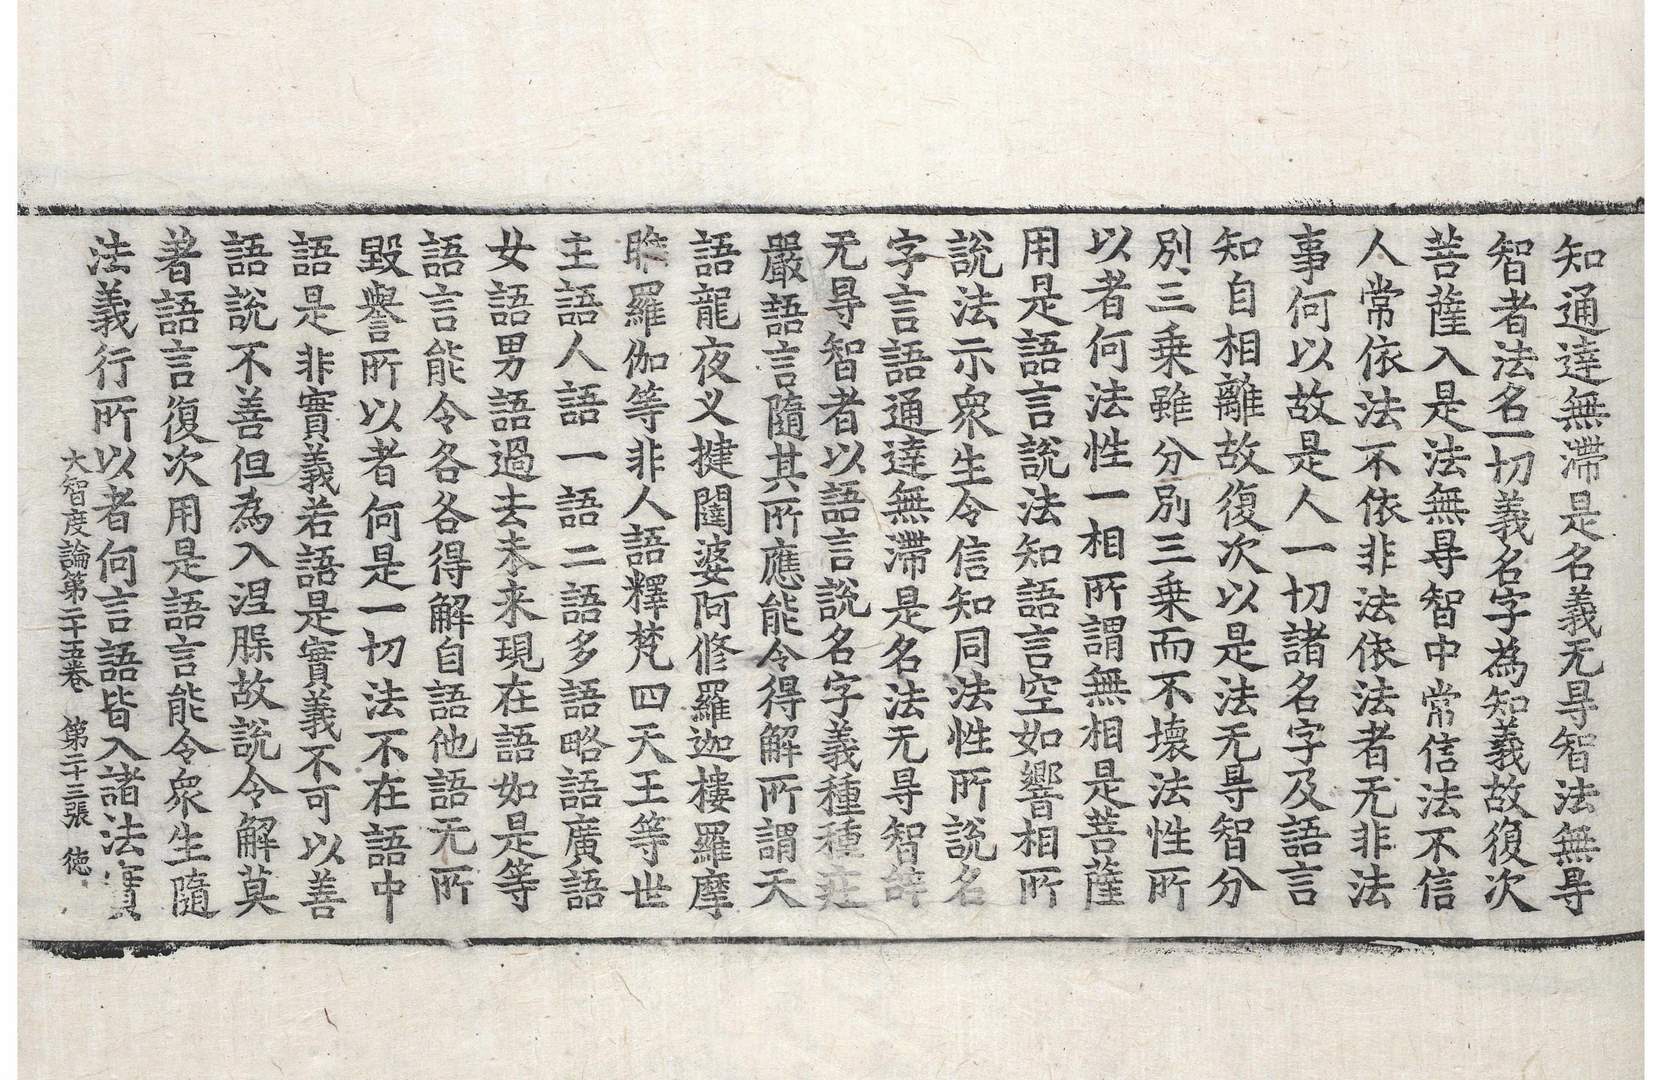 知通達無滯是名義无㝵智法無㝵
智者法名一切義名字為知義故復次
菩薩入是法無㝵智中常信法不信
人常依法不依非法依法者无非法
事何以故是人一切諸名字及語言
知自相離故復次以是法无㝵智分
別三乗雖分別三乗而不壞法性所
以者何法性一相所謂無相是菩薩
用是語言說法知語言空如響相所
說法示衆生令信知同法性所說名
字言語通達無滯是名法无㝵智辞
无㝵智者以語言說名字義種種莊
嚴語言隨其所應能令得解所謂天
語龍夜义揵闥婆阿修羅迦樓羅摩
睺羅伽等非人語釋梵四天王等世
主語人語一語二語多語略語廣語
女語男語過去未来現在語如是等
語言能令各各得解自語他語无所
毀譽所以者何是一切法不在語中
語是非實義若語是實義不可以善
語說不善但為入涅槃故說令解莫
著語言復次用是語言能令衆生隨
法義行所以者何言語皆入諸法實
大智度論第二十五卷 第二十三張 徳